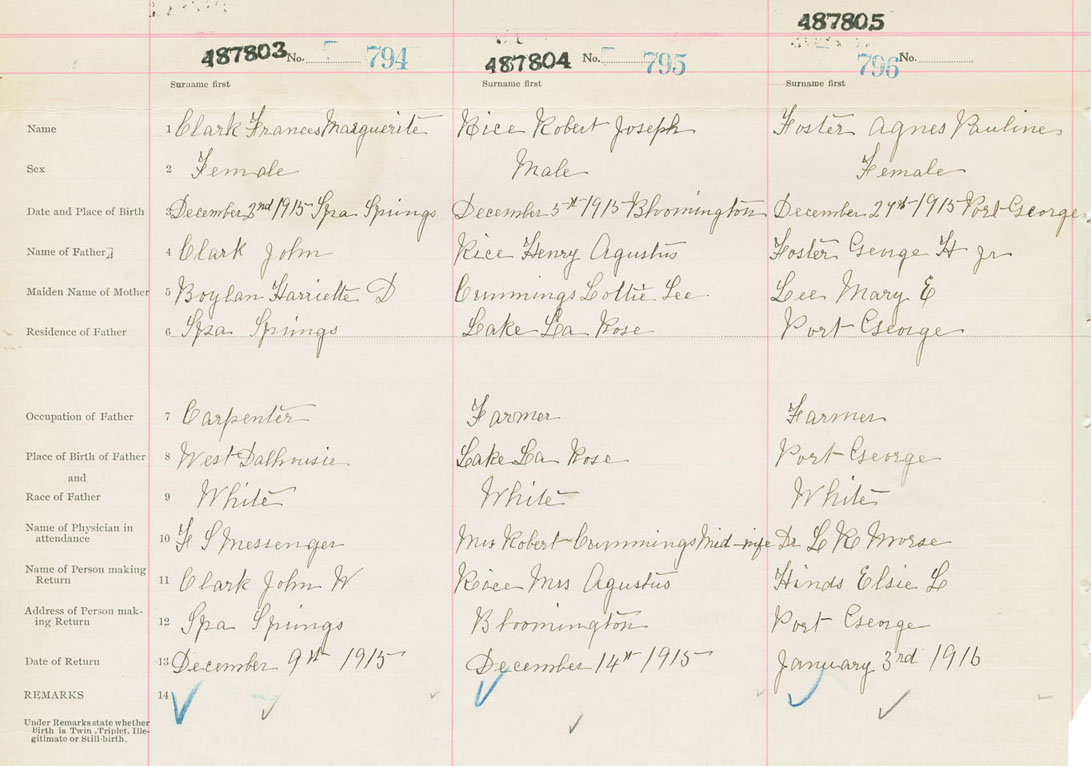 487805
487803 No. 794 487804 No. 795 796 No.
Surname first Surname first Surname first
Name 1 Clark Frances Marguerite Rice Robert Joseph Foster Agnes Pauline
Sex 2 Female Male Female
Date and Place of Birth 3 December 2nd 1915 Spa Springs December 5th 1915 Bloomington December 27th 1915 Port George
Name of Father 4 Clark John Rice Henry Agustus Foster George H Jr
Maiden Name of Mother 5 Boylan Harriette D Cummings Lottie Lee Lee Mary E
Residence of Father 6 Spa Springs Lake La Rose Port George
Occupation of Father 7 Carpenter Farmer Farmer
Place of Birth of Father 8 West Dalhousie Lake La Rose Port George
and
Race of Father 9 White White White
Name of Physician in
attendance 10 F S Messenger Mrs Robert Cummings Mid-wife Dr L R Morse
Name of Person making
Return 11 Clark John W Rice Mrs Agustus Hinds Elsie L
Address of Person mak-
ing Return 12 Spa Springs Bloomington Port George
Date of Return 13 December 9th 1915 December 14th 1915 January 3rd 1916
REMARKS 14
Under Remarks state whether
Birth is Twin, Triplet, Ille-
gitimate or Still-birth.